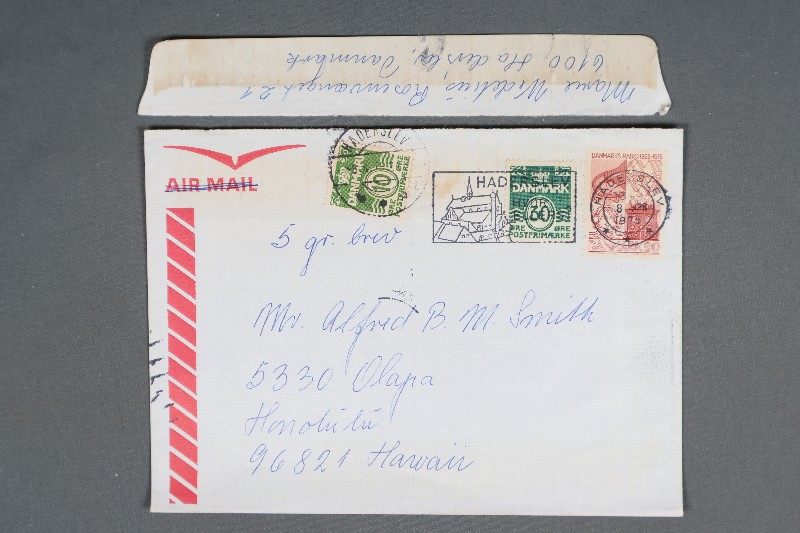 Marie Midelius, Rosenvænget 21
6100 Haderslev, Danmark
AIR MAIL
HADERSLEV
DANMARK
10
ØRE
ØRE
POSTFRIMÆRKE
HADERSLEV
DANMARK
60
ØRE ØRE
POSTFRIMÆRKE
DANMARKS RADIO 1925-1975
HADERSLEV
8
1975
5 gr. brev
Mr. Alfred B. M. Smith
5330 Olapa
Honolulu
96821 Hawaii